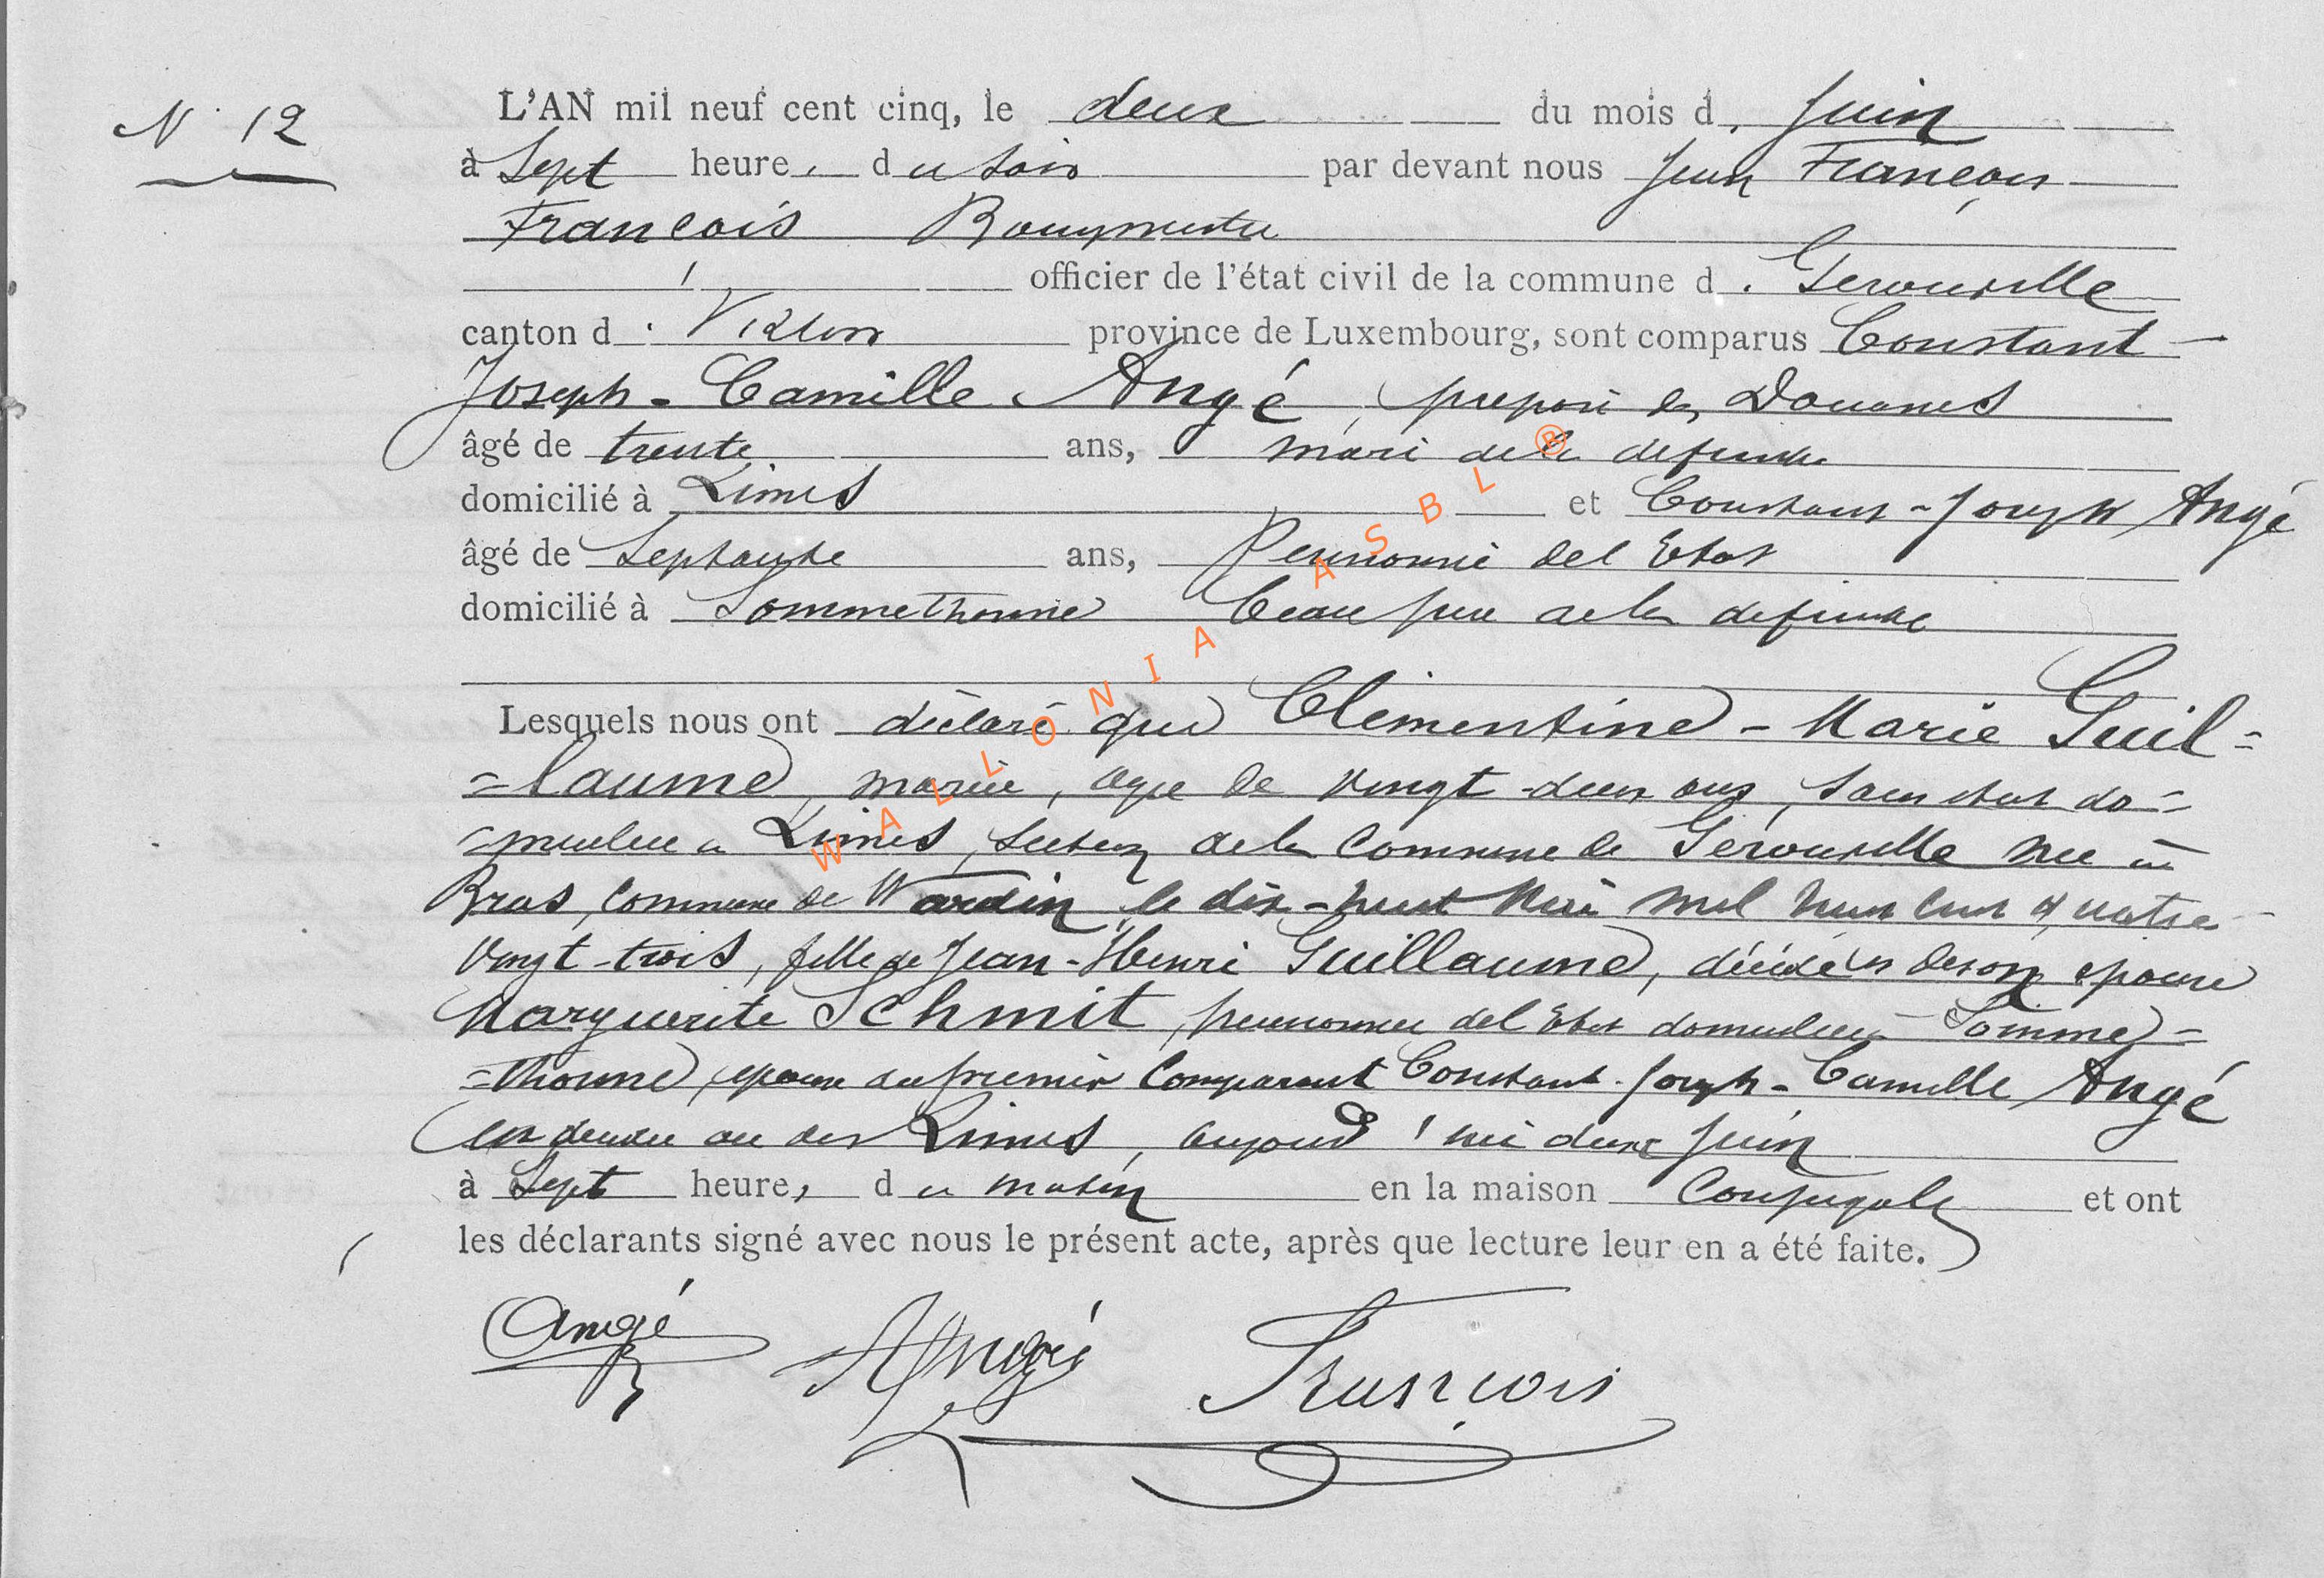 N° 12
L'AN mil neuf cent cinq, le deux du mois d. Juin
à Sept heure, du soir par devant nous Jean François
François Bourgmestre
officier de l'état civil de la commune d. Gerouville
canton d. Virton province de Luxembourg, sont comparus Constant
Joseph-Camille Angé, préposé des Douanes
âgé de trente ans, mari de la defunte
domicilié à Limes et Constant-Joseph Angé
âgé de Septante ans, Pensionné de l Etat
domicilié à Sommethonne beau père de la defunte
Lesquels nous ont déclaré que Clémentine-Marie Guil=
=laume, mariée, agée de vingt-deux ans, sans etat do=
=miciliée a Limes, section de la Commune de Gérouville née à
Bras, Commune de Wardin le dix-huit Mai mil huit cent quatre
vingt-trois, fille de Jean-Henri Guillaume, décédé et de son epouse
Marguerite Schmit, pensionnée de l Etat domiciliée à Somme=
=thonne, epouse du premier Comparant Constant-Joseph-Camille Angé
est decedée au dit Limes, aujourd'hui deux Juin
à Sept heure, du matin en la maison Conjugale et ont
les déclarants signé avec nous le présent acte, après que lecture leur en a été faite.
Angé Angé François
WALLONIA ASBL ®